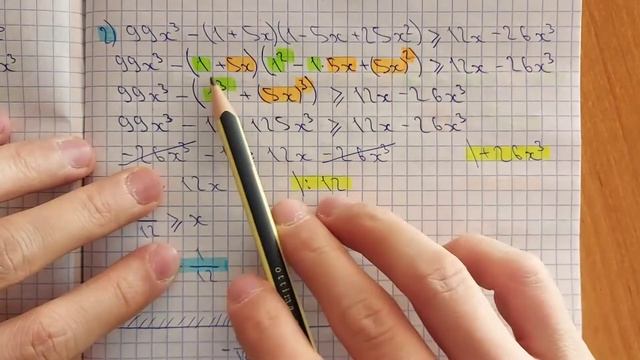 2) 99x³ - (1 + 5x)(1 - 5x + 25x²) ≥ 12x - 26x³
99x³ - (1 + 5x)(1² - 1·5x + (5x)²) ≥ 12x - 26x³
99x³ - ( ³ + (5x)³) ≥ 12x - 26x³
99x³ - 1 125x³ ≥ 12x - 26x³
-26x³ - 1 12x - 26x³ |+26x³
12x |: 12
12 ≥ x
1
12